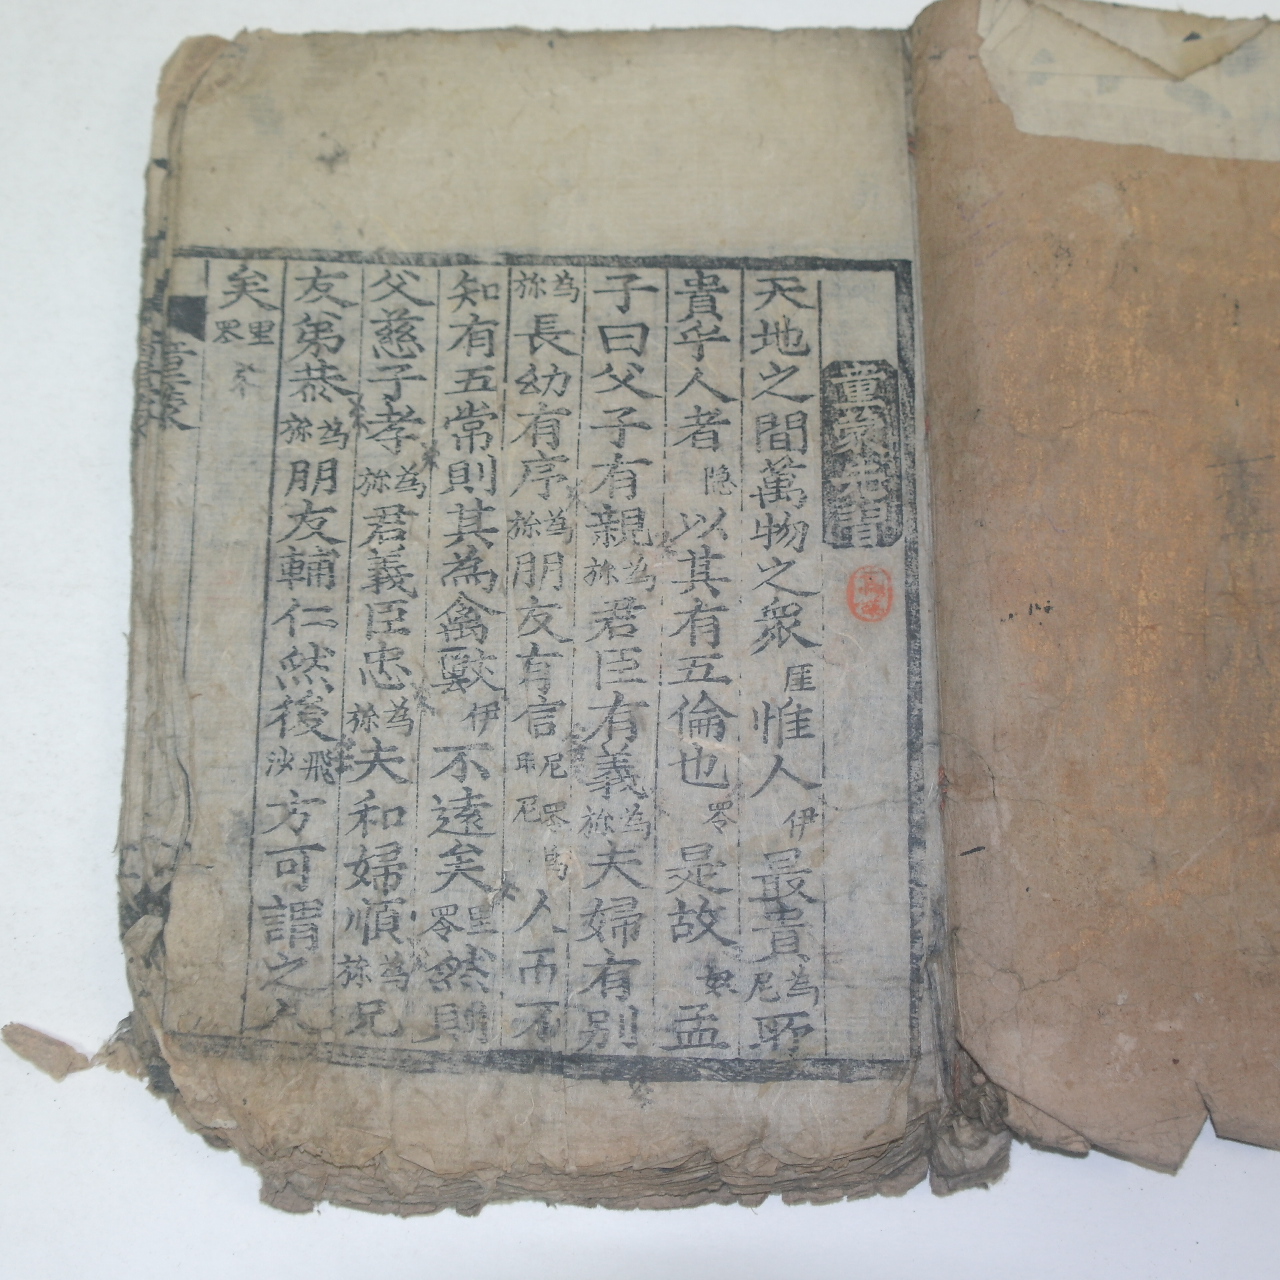 童蒙先習
天地之間萬物之衆厓惟人伊最貴為尼所
貴乎人者隐以其有五倫也罗是故奴孟
子曰父子有親為旀君臣有義為旀夫婦有別
為旀長幼有序為旀朋友有信是尼罗為人而不
知有五常則其為禽獸伊不遠矣里罗然則
父慈子孝為旀君義臣忠為旀夫和婦順為旀兄
友弟恭為旀朋友輔仁然後飛沙方可謂之人
矣里罗
童蒙